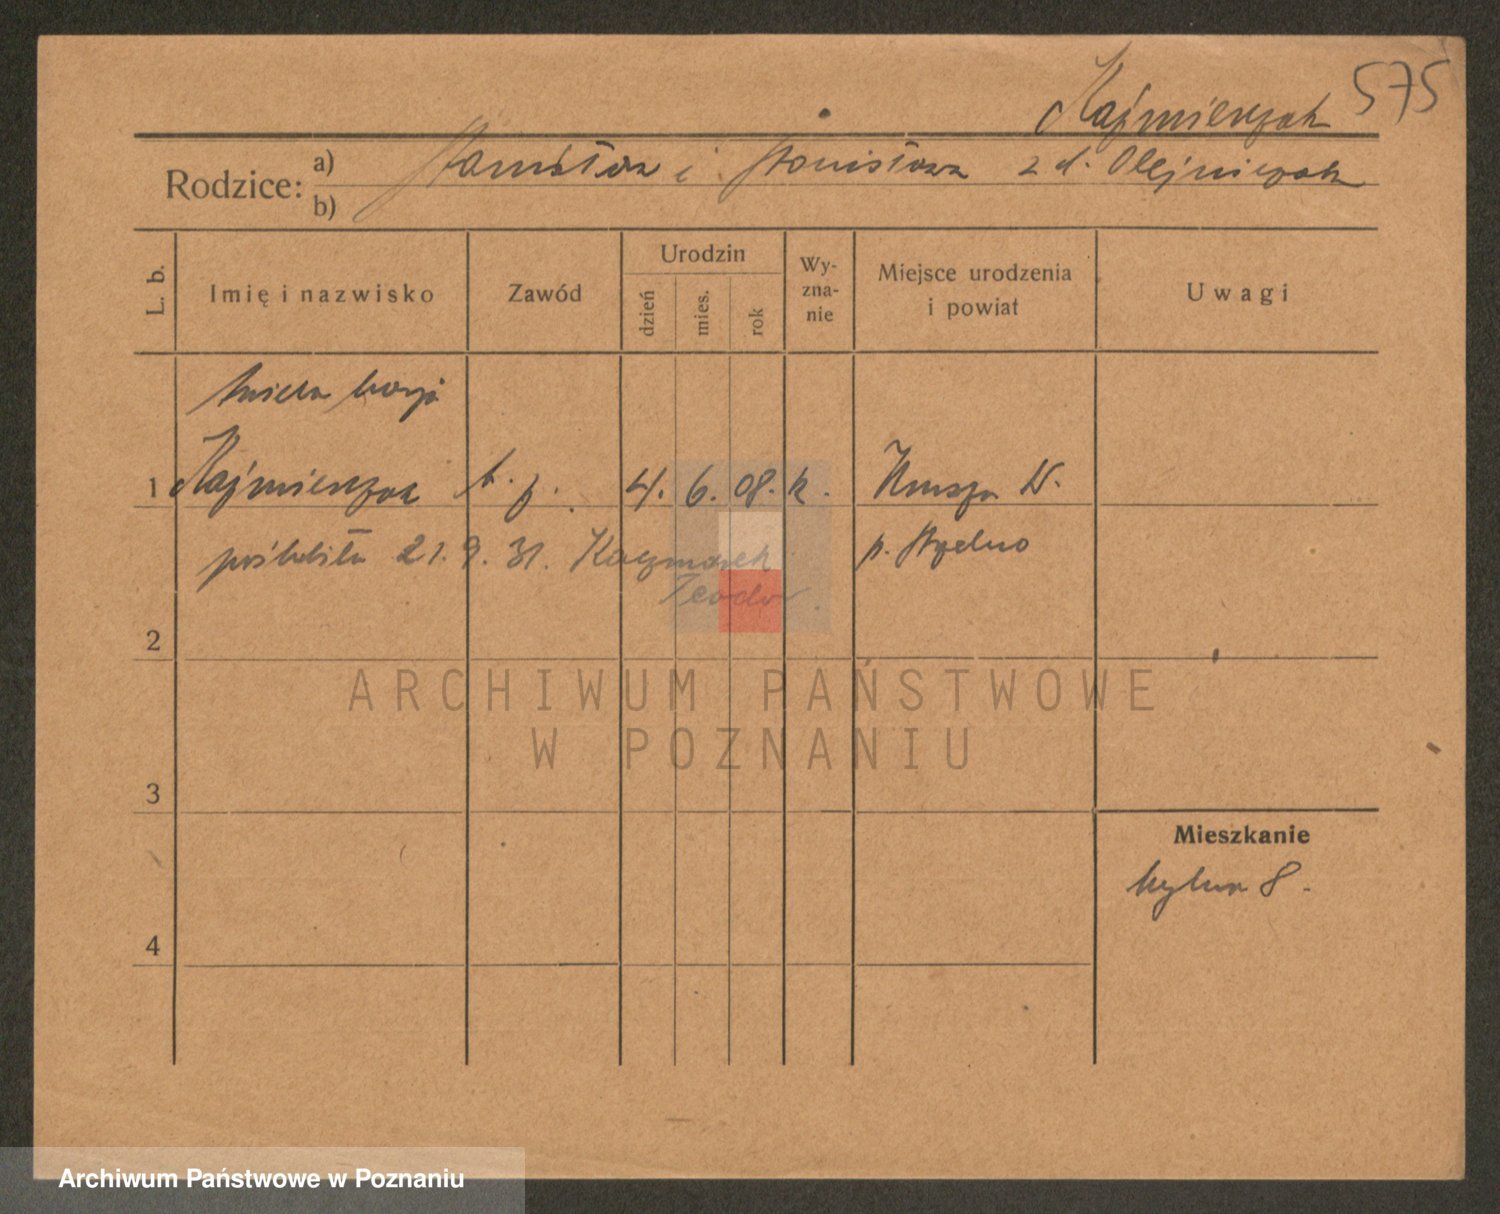 575
Kaźmierczak
Rodzice: a) Stanisław i Stanisława z d. Olejniczak
b)
L. b.
Imię i nazwisko
Zawód
Urodzin
dzień
mies.
rok
Wy-
zna-
nie
Miejsce urodzenia
i powiat
Uwagi
Aniela
1 Kaźmierczak b. z. 4. 6. 08. k.
poślubiła 21. 9. 31. Kaczmarek
Teodor
p.
2
3
4
Mieszkanie
8.
ARCHIWUM PAŃSTWOWE
W POZNANIU
Archiwum Państwowe w Poznaniu